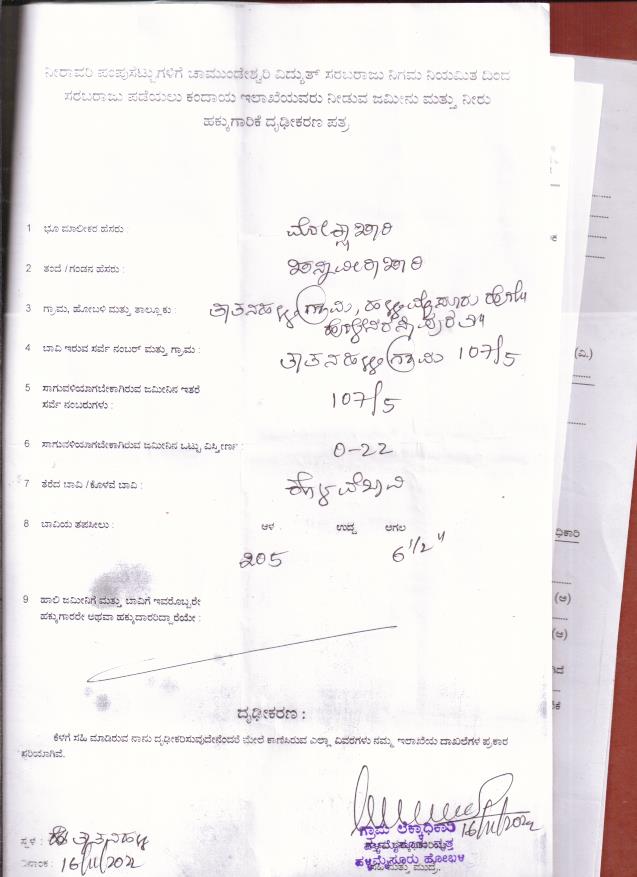 ನೀರಾವರಿ ಪಂಪುಸೆಟ್ಟುಗಳಿಗೆ ಚಾಮುಂಡೇಶ್ವರಿ ವಿದ್ಯುತ್ ಸರಬರಾಜು ನಿಗಮ ನಿಯಮಿತ ದಿಂದ
ಸರಬರಾಜು ಪಡೆಯಲು ಕಂದಾಯ ಇಲಾಖೆಯವರು ನೀಡುವ ಜಮೀನು ಮತ್ತು ನೀರು
ಹಕ್ಕುಗಾರಿಕೆ ದೃಢೀಕರಣ ಪತ್ರ
1 ಭೂ ಮಾಲೀಕರ ಹೆಸರು :
2 ತಂದೆ / ಗಂಡನ ಹೆಸರು :
3 ಗ್ರಾಮ, ಹೋಬಳಿ ಮತ್ತು ತಾಲ್ಲೂಕು : ತಾತನಹಳ್ಳಿ ಗ್ರಾಮ,
4 ಬಾವಿ ಇರುವ ಸರ್ವೆ ನಂಬರ್ ಮತ್ತು ಗ್ರಾಮ : ತಾತನಹಳ್ಳಿ ಗ್ರಾಮ 107/5
5 ಸಾಗುವಳಿಯಾಗಬೇಕಾಗಿರುವ ಜಮೀನಿನ ಇತರೆ
ಸರ್ವೆ ನಂಬರುಗಳು : 107/5
6 ಸಾಗುವಳಿಯಾಗಬೇಕಾಗಿರುವ ಜಮೀನಿನ ಒಟ್ಟು ವಿಸ್ತೀರ್ಣ 0-22
7 ತೆರೆದ ಬಾವಿ / ಕೊಳವೆ ಬಾವಿ : ಕೊಳವೆಬಾವಿ
8 ಬಾವಿಯ ತಪಸೀಲು : ಆಳ . ಉದ್ದ ಅಗಲ
205 6 1/2"
9 ಹಾಲಿ ಜಮೀನಿಗೆ ಮತ್ತು ಬಾವಿಗೆ ಇವರೊಬ್ಬರೇ
ಹಕ್ಕುಗಾರರೇ ಅಥವಾ ಹಕ್ಕುದಾರರಿದ್ದಾರೆಯೇ :
ದೃಢೀಕರಣ :
ಕೆಳಗೆ ಸಹಿ ಮಾಡಿರುವ ನಾನು ದೃಢೀಕರಿಸುವುದೇನೆಂದರೆ ಮೇಲೆ ಕಾಣಿಸಿರುವ ಎಲ್ಲಾ ವಿವರಗಳು ನಮ್ಮ ಇಲಾಖೆಯ ದಾಖಲೆಗಳ ಪ್ರಕಾರ
ಸರಿಯಾಗಿವೆ.
16/11/2022
ಸ್ಥಳ : ತಾತನಹಳ್ಳಿ
ಗ್ರಾಮ ಲೆಕ್ಕಾಧಿಕಾರಿ
ದಿನಾಂಕ : 16/11/2022
ಹಳೇಮೈಸೂರು ಹೋಬಳಿ
ಸಹಿ ಮತ್ತು ಮುದ್ರೆ.
(ವಿ.)
ಧಿಕಾರಿ
(ಆ)
(ಆ)